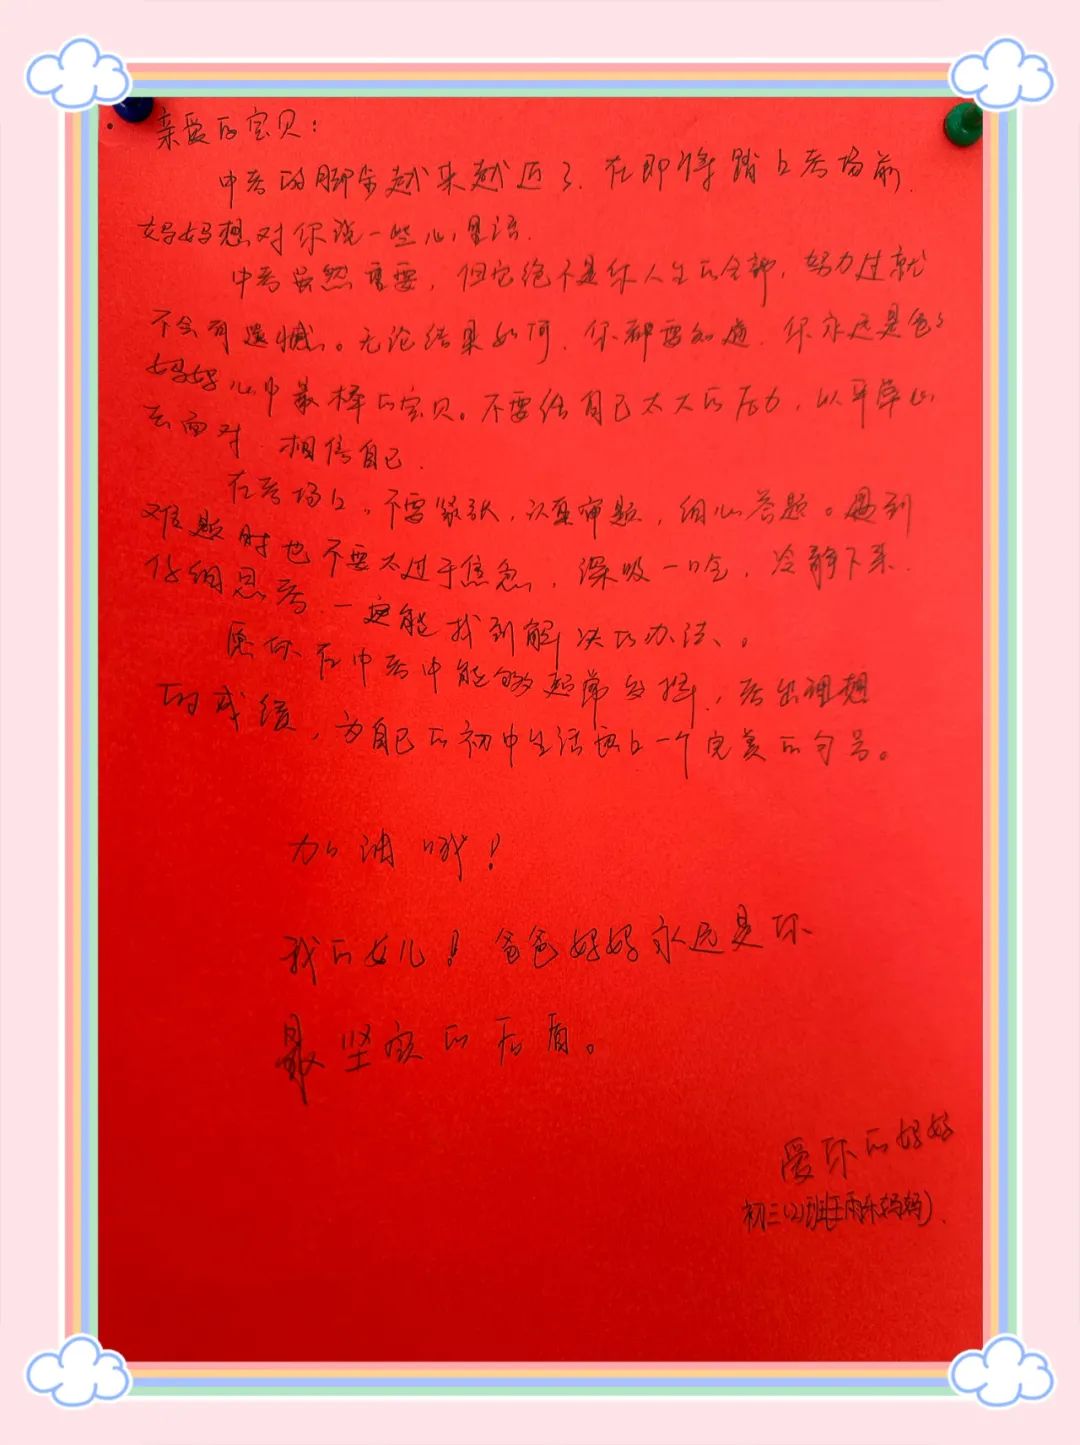 亲爱的宝贝:
中考的脚步越来越近了.在即将踏上考场前.
妈妈想对你说一些心里话.
中考虽然重要,但它绝不是你人生的全部,努力过就
不会有遗憾。无论结果如何.你都要知道.你永远是爸爸
妈妈心中最棒的宝贝。不要给自己太大的压力,以平常心
去面对.相信自己.
在考场上,不要紧张,认真审题,细心答题。遇到
难题时也不要太过于焦急,深吸一口气,冷静下来.
仔细思考.一定能找到解决的办法、。
愿你在中考中能够超常发挥,考出理想
的成绩,为自己的初中生活画上一个完美的句号。
加油哦!
我的女儿!爸爸妈妈永远是你
最坚实的后盾。
爱你的妈妈
初三(2)班王雨乐妈妈).